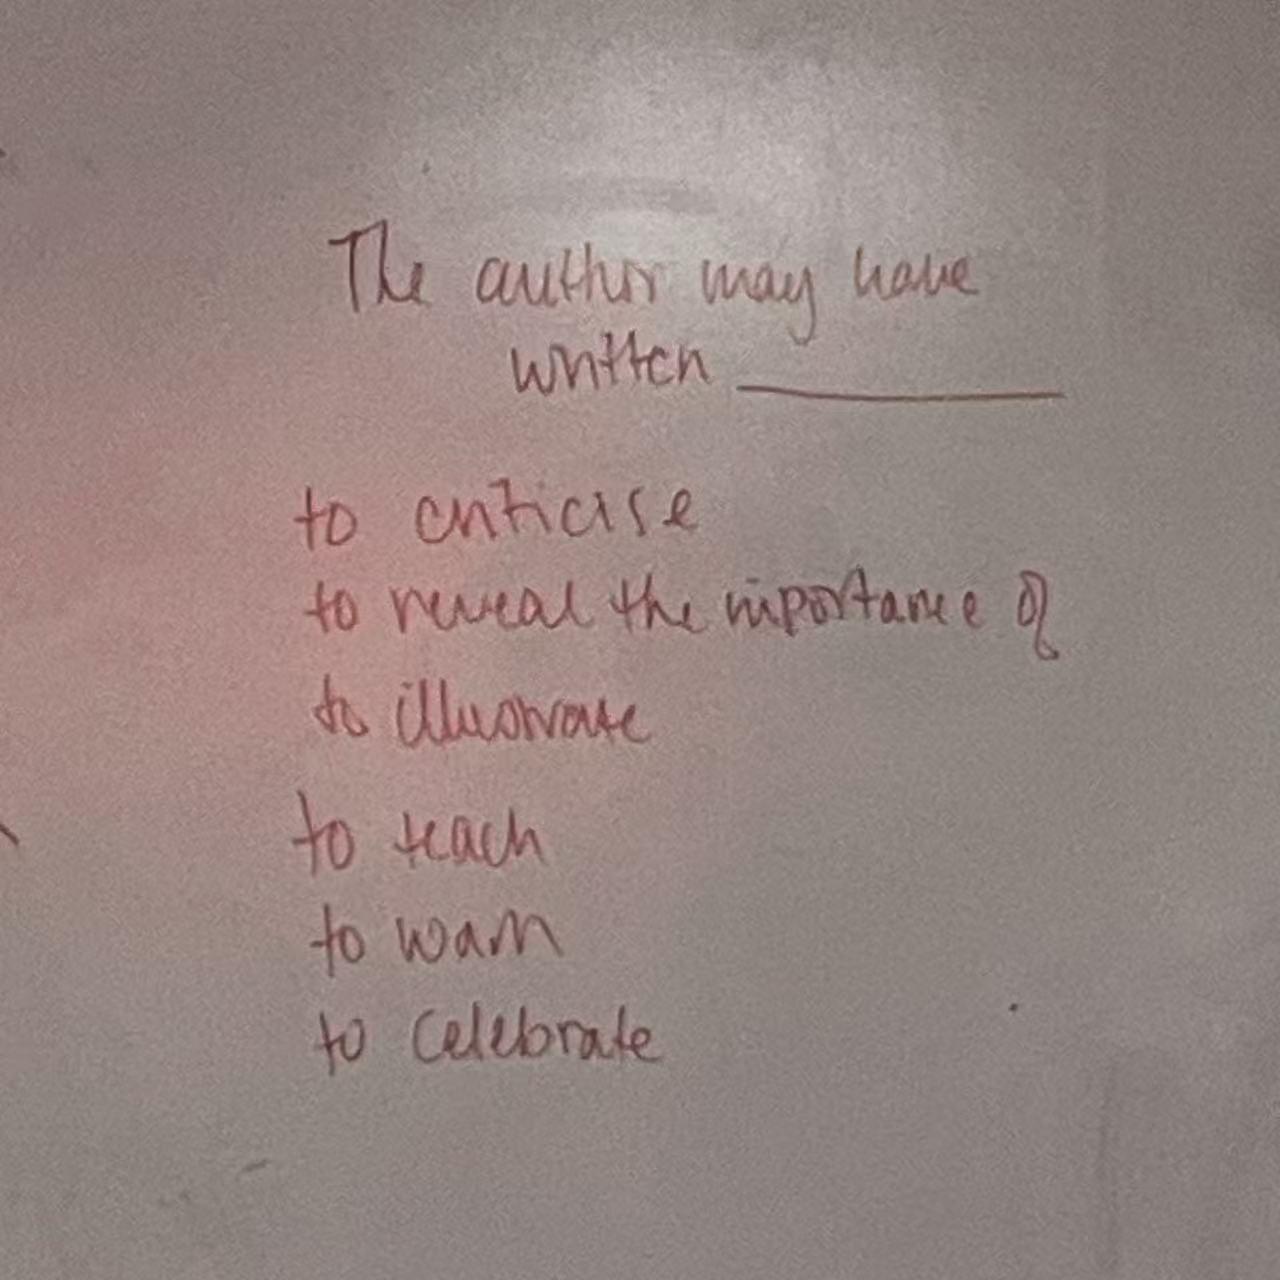 The author may have
written __________
to criticise
to reveal the importance of
to illustrate
to teach
to warn
to celebrate